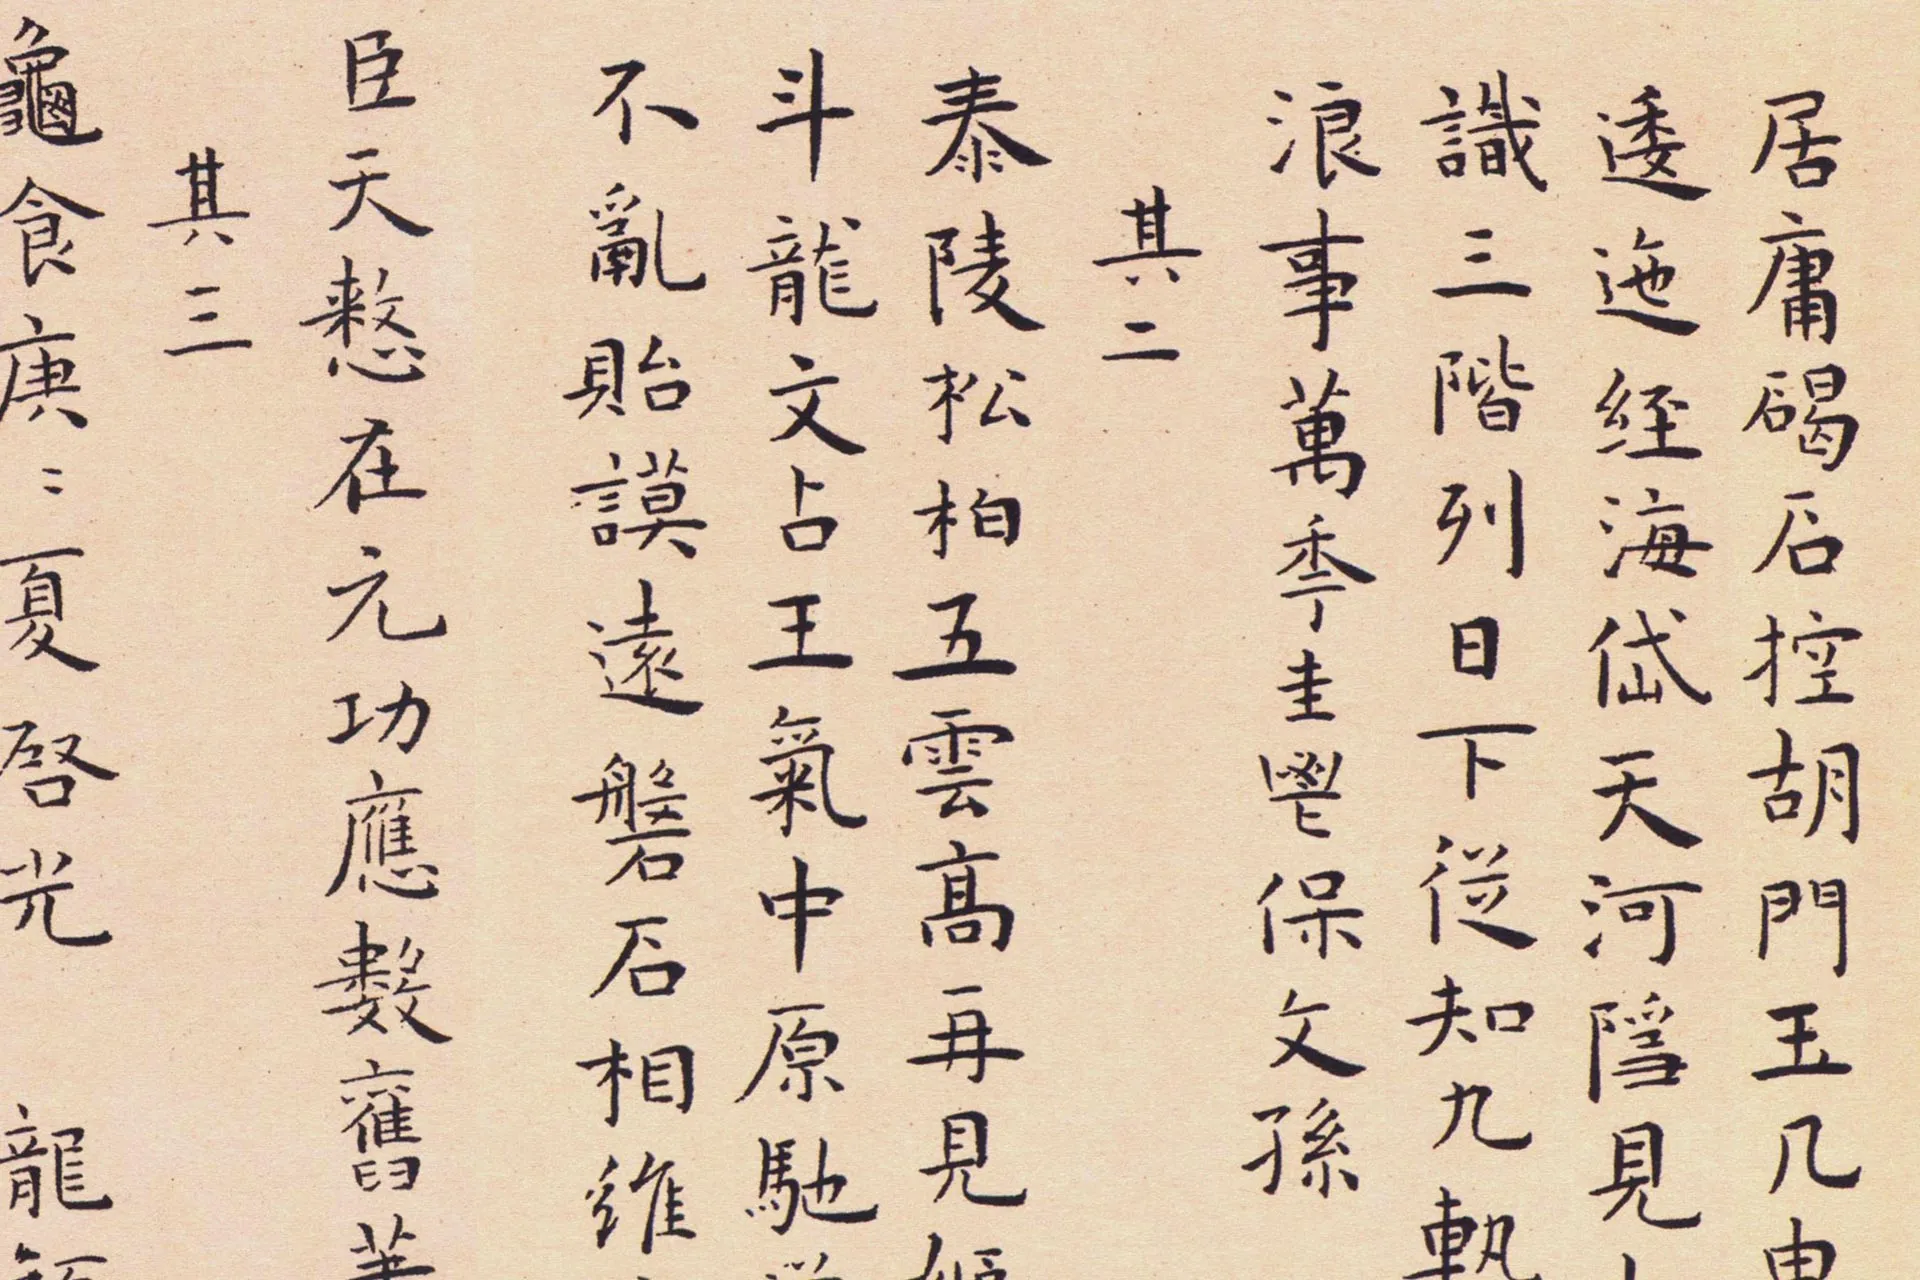 居庸碣石控胡門玉几
逶迤經海岱天河隱見
識三階列日下從知九
浪事萬季圭鬯保文孫
其二
泰陵松柏五雲高再見
斗龍文占王氣中原馳
不亂貽謨遠磐石相維
臣天憗在元功應數舊
其三
龜食庚〻夏啓光 龍